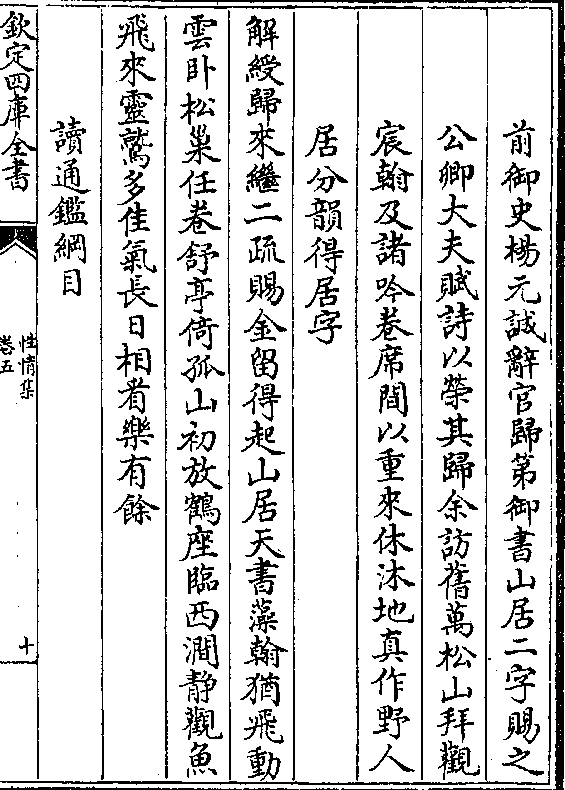 前御史楊元誠辭官歸第御書山居二字賜之
公卿大夫賦詩以榮其歸余訪舊萬松山拜觀
宸翰及諸吟卷席間以重來休沐地真作野人
居分韻得居字
解綬歸來繼二疏賜金留得起山居天書藻翰猶飛動
雲卧松巢任卷舒亭倚孤山初放鶴座臨西澗静觀魚
飛來靈鷲多佳氣長日相看樂有餘
讀通鑑綱目
欽定四庫全書
性情集
卷五
十